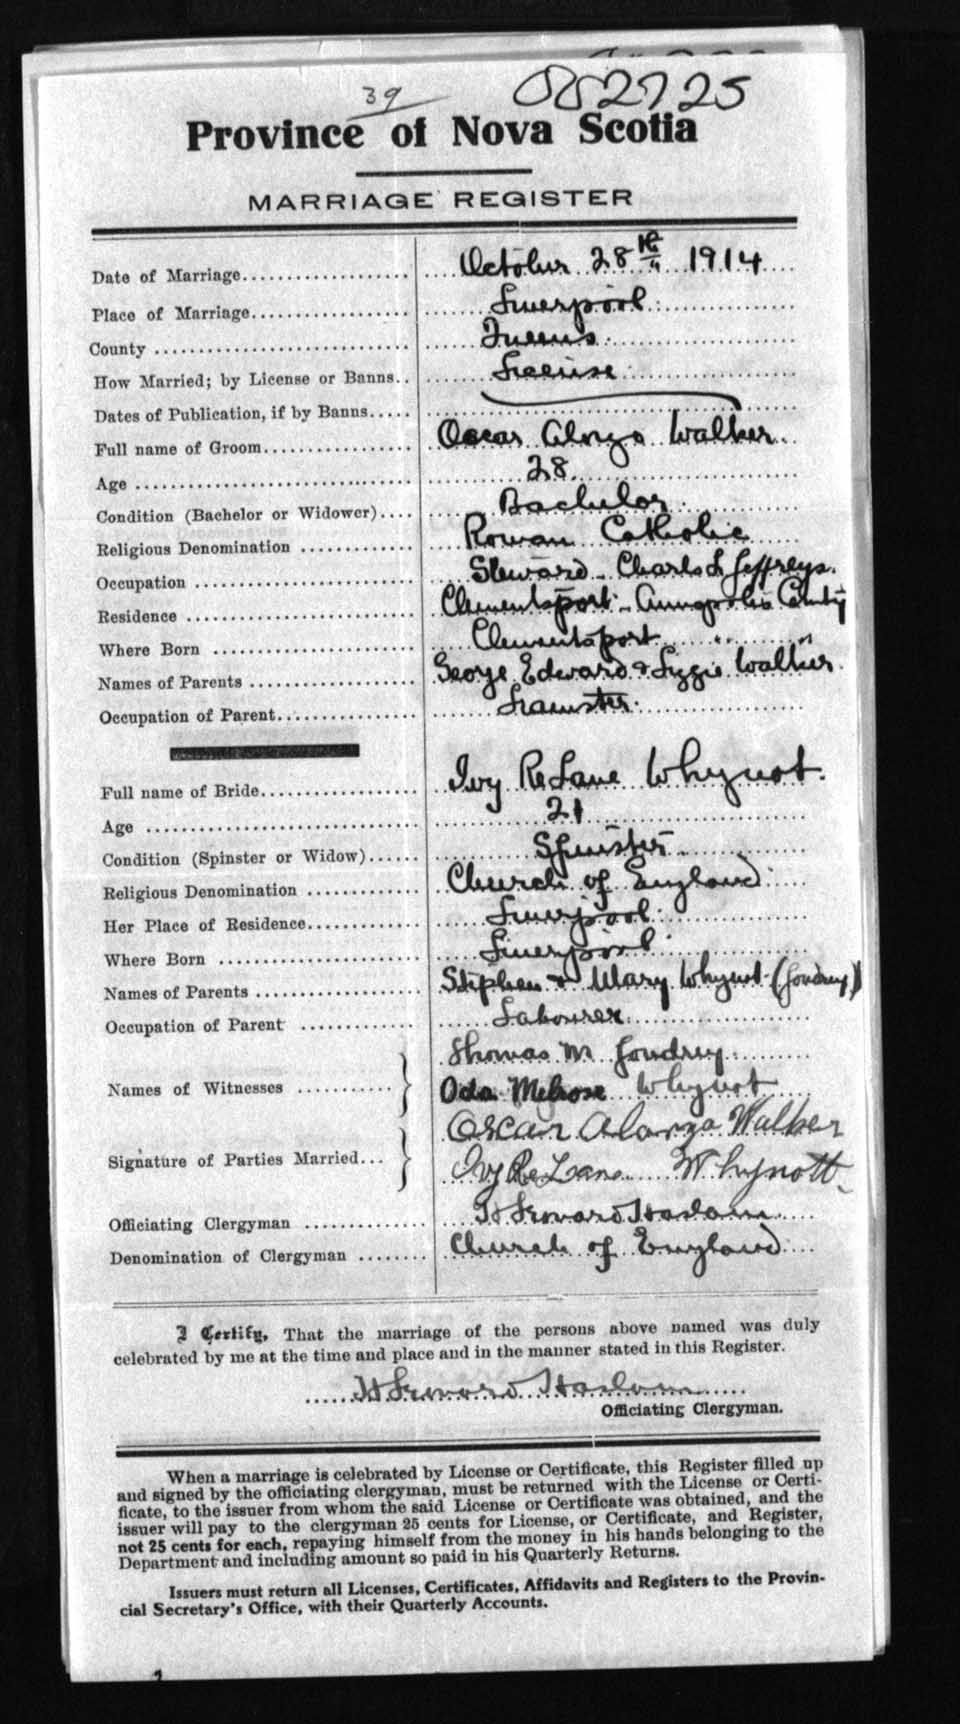 39
082725
Province of Nova Scotia
MARRIAGE REGISTER
Date of Marriage................... October 28th 1914
Place of Marriage.................. Liverpool
County ............................. Queens
How Married; by License or Banns.. License
Dates of Publication, if by Banns.....
Full name of Groom................. Oscar Alonzo Walker
Age ............................... 28
Condition (Bachelor or Widower).... Bachelor
Religious Denomination ............. Roman Catholic
Occupation ......................... Steward - Charles L Jeffreys.
Residence .......................... Clementsport - Annapolis County
Where Born ....................... Clementsport " "
Names of Parents ................... George Edward & Lizzie Walker
Occupation of Parent................ Teamster
Full name of Bride.................. Ivy ReLane Whynot.
Age ............................... 21
Condition (Spinster or Widow)...... Spinster
Religious Denomination ............. Church of England
Her Place of Residence............. Liverpool
Where Born ....................... Liverpool
Names of Parents ................... Stephen & Mary Whynot (Joudrey)
Occupation of Parent ............. Labourer
Names of Witnesses ........... } Thomas M Joudrey
Oda Melrose Whynot
Signature of Parties Married... } Oscar Alonzo Walker
Ivy ReLane Whynott
Officiating Clergyman .............. H Howard Haslam
Denomination of Clergyman ........ Church of England
I Certify, That the marriage of the persons above named was duly
celebrated by me at the time and place and in the manner stated in this Register.
H Howard Haslam
Officiating Clergyman.
When a marriage is celebrated by License or Certificate, this Register filled up
and signed by the officiating clergyman, must be returned with the License or Certi-
ficate, to the issuer from whom the said License or Certificate was obtained, and the
issuer will pay to the clergyman 25 cents for License, or Certificate, and Register,
not 25 cents for each, repaying himself from the money in his hands belonging to the
Department and including amount so paid in his Quarterly Returns.
Issuers must return all Licenses, Certificates, Affidavits and Registers to the Provin-
cial Secretary's Office, with their Quarterly Accounts.